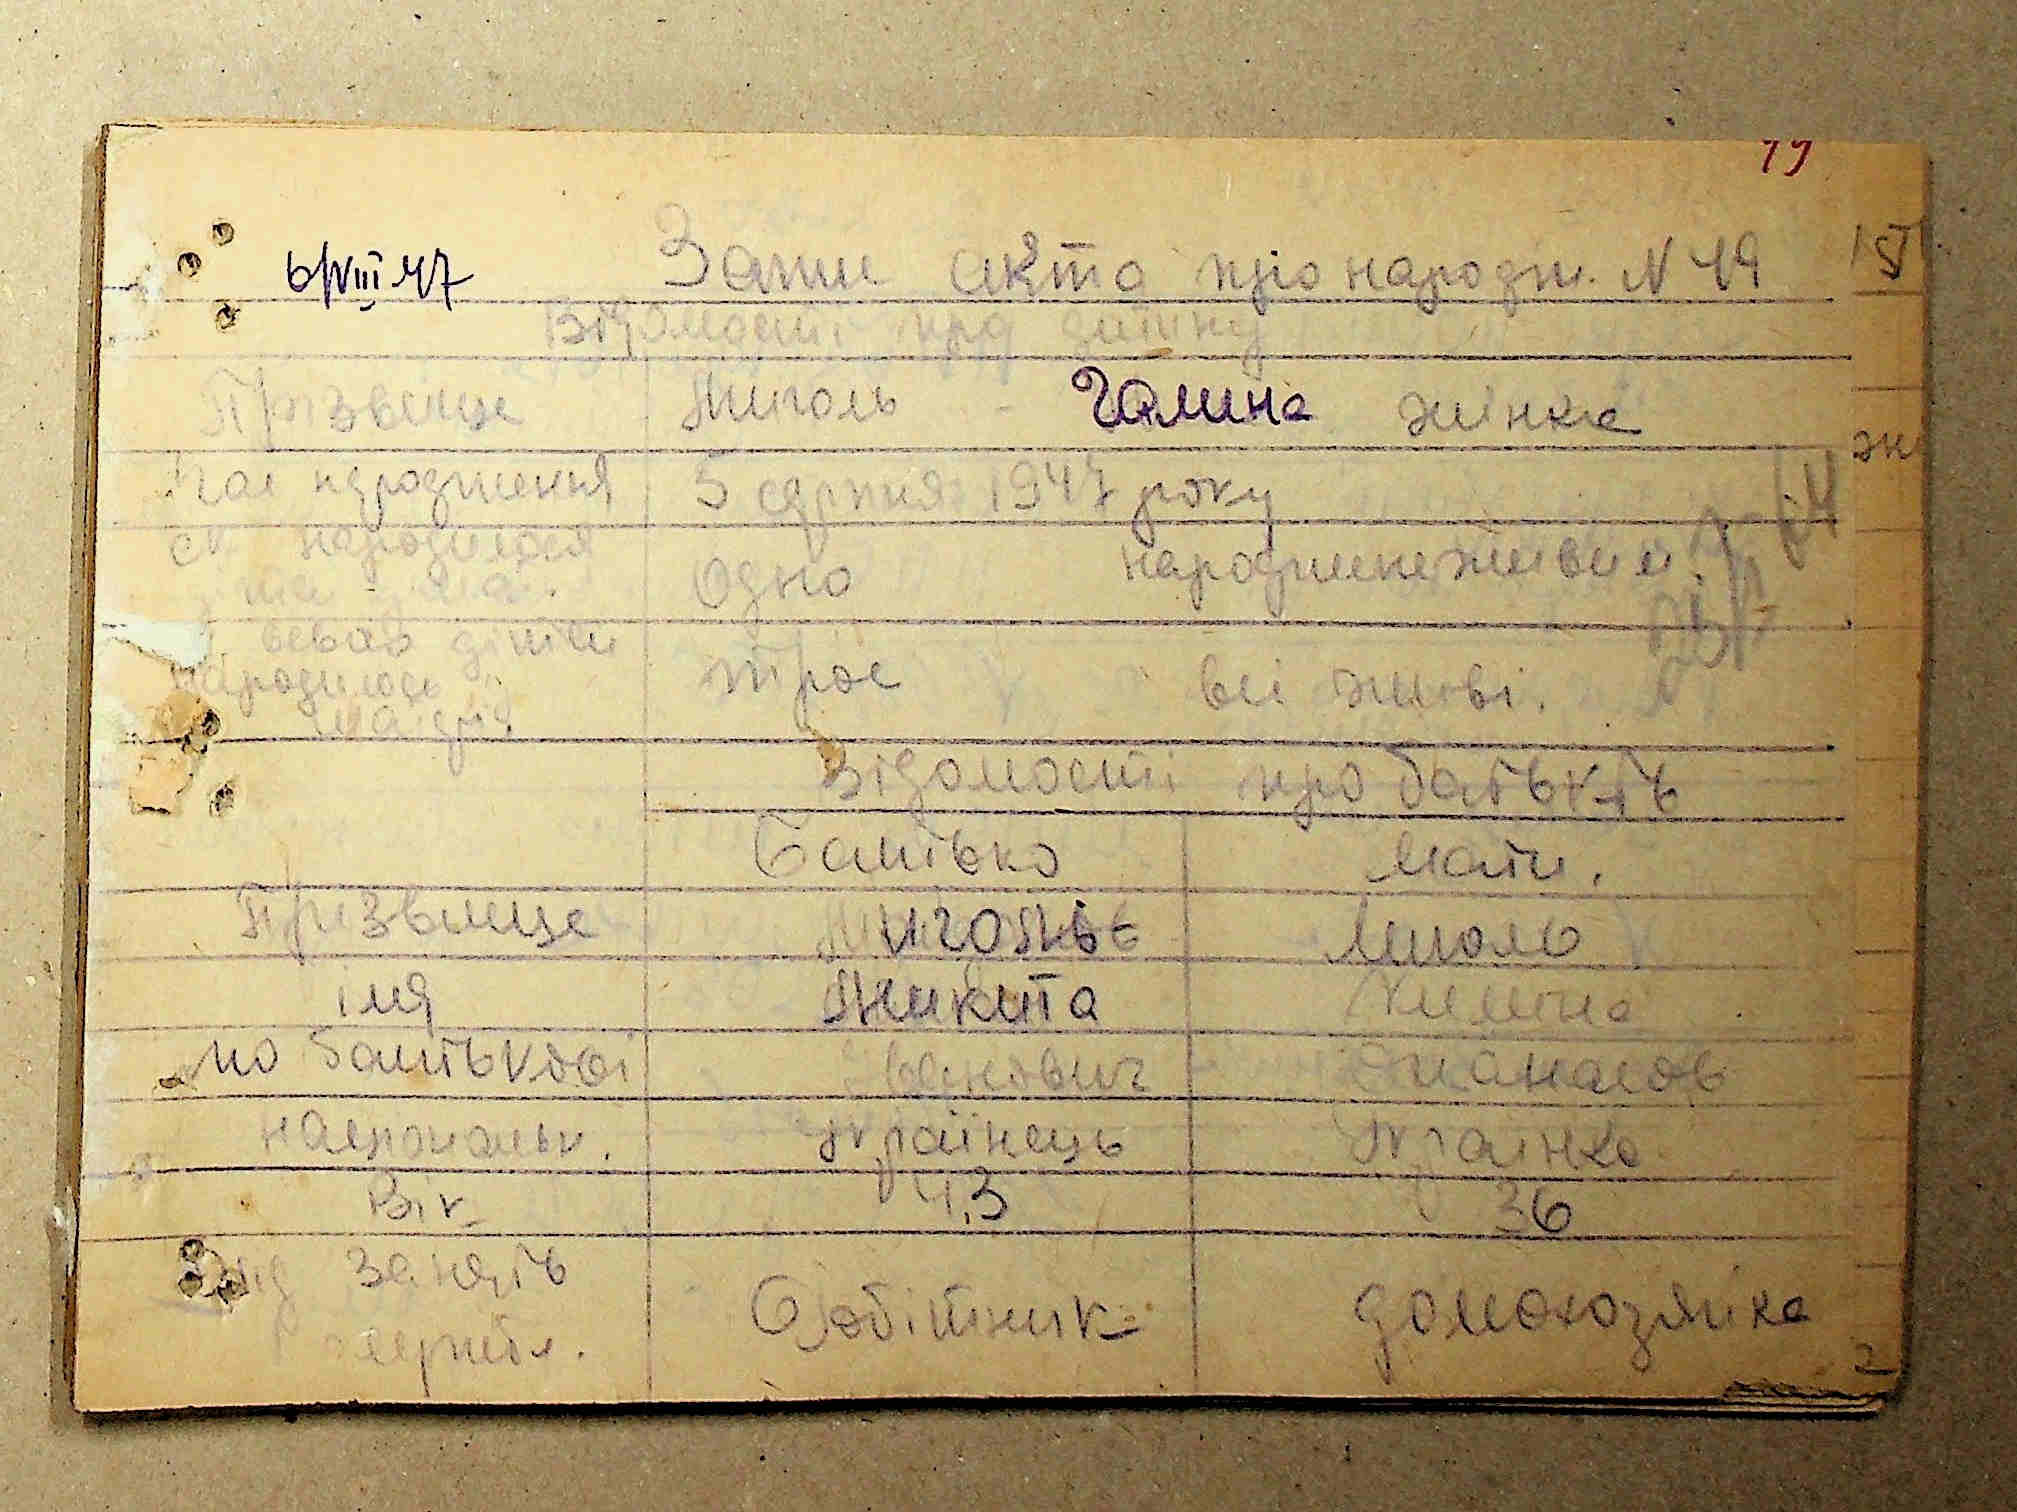 19
6/VIII 47 Запис акта про народж. N 19
Відомості про дитину
Призвище Миголь Галина жінка
Час народження 5 серпня 1947 року
народилося одно народжене живим.
та
всваго дітей
народилось троє всі живі.
Відомості про батьків
Батько Мати.
Призвище Миголь Миголь
імя Микита
по батькові Іванович
національн. Українець Українка
Вік 43 36
Вид занять Робітник домохозяйка